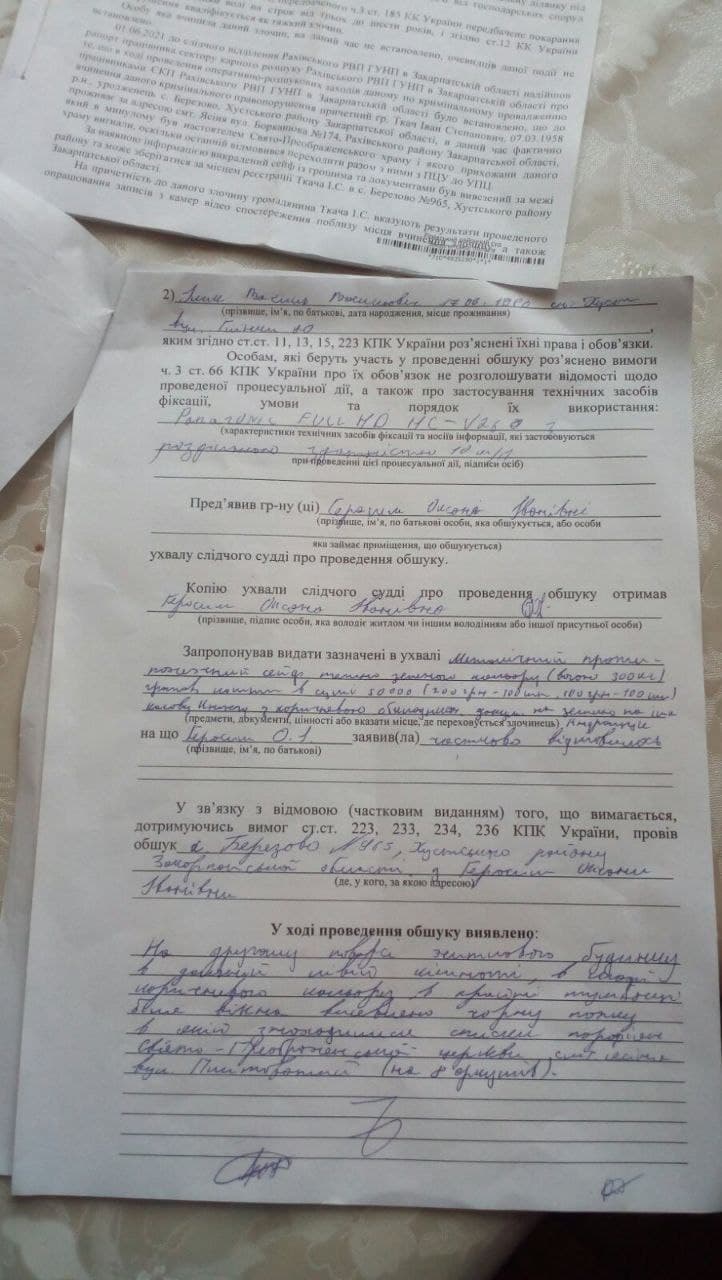 передбаченого ч.3 ст. 185 КК України передбачене покарання
волі на строк від трьох до шести років, і згідно ст.12 КК України
кваліфікується як тяжкий злочин.
Особу, яка вчинила даний злочин, на даний час не встановлено, очевидців даної події не
встановлено.
01.06.2021 до слідчого відділення Рахівського РВП ГУНП в Закарпатській області надійшов
рапорт працівника сектору карного розшуку Рахівського РВП ГУНП в Закарпатській області про
те, що в ході проведення оперативно-розшукових заходів даному по кримінальному провадженню
працівниками СКП Рахівського РВП ГУНП в Закарпатській області було встановлено, що до
вчинення даного кримінального правопорушення причетний гр. Ткач Іван Степанович, 07.03.1958
р.н., уродженець с. Березово, Хустського району Закарпатської області, в даний час фактично
проживає за адресою смт. Ясіня вул. Борканюка №174, Рахівського району Закарпатської області,
який в минулому був настоятелем Свято-Преображенського храму і якого прихожани даного
храму вигнали, оскільки останній відмовився переходити разом з ними з ПЦУ до УПЦ
За наявною інформацією викрадений сейф із грошима та документами був вивезений за межі
району та може зберігатися за місцем реєстрації Ткача І.С. в с. Березово №965, Хустського району
Закарпатської області.
На причетність до даного злочину громадянина Ткача І.С. вказують результати проведеного
опрацювання записів з камер відео спостереження поблизу місця вчинення злочину, а також
2) Василь Васильович 17.06.1980
(прізвище, ім'я, по батькові, дата народження, місце проживання)
вул.
яким згідно ст.ст. 11, 13, 15, 223 КПК України роз'яснені їхні права і обов'язки.
Особам, які беруть участь у проведенні обшуку роз'яснено вимоги
ч. 3 ст. 66 КПК України про їх обов'язок не розголошувати відомості щодо
проведеної процесуальної дії, а також про застосування технічних засобів
фіксації, умови та порядок їх використання:
Panasonic FULL HD HC-V260 з
(характеристики технічних засобів фіксації та носіїв інформації, які застосовуються
роздільною здатністю 10 м/п
при проведенні цієї процесуальної дії, підписи осіб)
Пред'явив гр-ну (ці) Геросим Оксана Іванівні
(прізвище, ім'я, по батькові особи, яка обшукується, або особи
яка займає приміщення, що обшукується)
ухвалу слідчого судді про проведення обшуку.
Копію ухвали слідчого судді про проведення обшуку отримав
Геросим Оксана Іванівна
(прізвище, підпис особи, яка володіє житлом чи іншим володінням або іншої присутньої особи)
Запропонував видати зазначені в ухвалі Металічний проти-
пожежний сейф, темно зеленого кольору (вагою 300 кг)
грошові кошти в сумі 50000 (200 грн-100 шт, 100 грн-100 шт)
касову книгу з коричневою обкладинкою, на землю на
(предмети, документи, цінності або вказати місце, де переховується злочинець)
на що Геросим О.І заявив(ла) частково відмовилась
(прізвище, ім'я, по батькові)
У зв'язку з відмовою (частковим виданням) того, що вимагається,
дотримуючись вимог ст.ст. 223, 233, 234, 236 КПК України, провів
обшук с. Березово №965, Хустського району
Закарпатської області, у Геросим Оксани
(де, у кого, за якою адресою)
Іванівни
У ході проведення обшуку виявлено:
На другому поверсі житлового будинку
в дальній лівій кімнаті, в
коричневого кольору, в крайній тумбочці
біля вікна виявлено чорну папку
в якій знаходилися списки парафіян
Свято-Преображенської церкви смт Ясіня
вул. (на 8 аркушів).